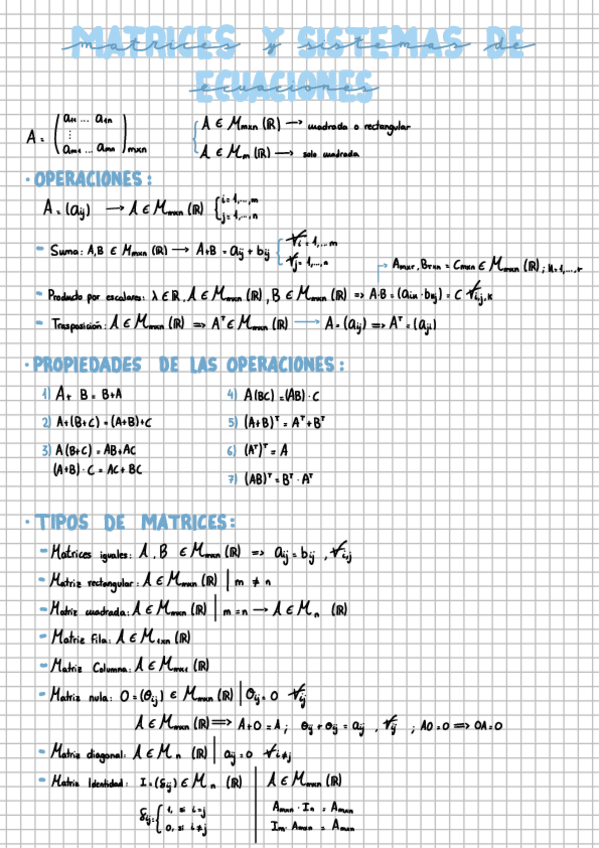 MATRICES Y SISTEMAS DE
matrices y sistemas de
ECUACIONES
ecuaciones
A = ( a₁₁ ... a₁n ⋮ am₁ ... amn ) mxn { A ∈ Mmxn (ℝ) → cuadrada o rectangular
A ∈ Mm (ℝ) → solo cuadrada
· OPERACIONES:
A = (aij) → A ∈ Mmxn (ℝ) { i=1,...,m
j=1,...,n
- Suma: A,B ∈ Mmxn (ℝ) → A+B = aij + bij { ∀i = 1,...m
∀j = 1,...,n
→ Amxr, Brxn = Cmxn ∈ Mmxn (ℝ) ; k=1,...,r
- Producto por escalares: λ ∈ ℝ, A ∈ Mmxn (ℝ), B ∈ Mmxn (ℝ) => A·B = (aik · bkj) = C ∀i,j,k
- Trasposición: A ∈ Mmxn (ℝ) => Aᵀ ∈ Mmxn (ℝ) → A = (aij) => Aᵀ = (aji)
· PROPIEDADES DE LAS OPERACIONES:
1) A + B = B+A 4) A(BC) = (AB)·C
2) A+(B+C) = (A+B)+C 5) (A+B)ᵀ = Aᵀ+Bᵀ
3) A(B+C) = AB+AC 6) (Aᵀ)ᵀ = A
(A+B)·C = AC+BC 7) (AB)ᵀ = Bᵀ·Aᵀ
· TIPOS DE MATRICES:
- Matrices iguales: A, B ∈ Mmxn (ℝ) => aij = bij , ∀i,j
- Matriz rectangular: A ∈ Mmxn (ℝ) | m ≠ n
- Matriz cuadrada: A ∈ Mmxn (ℝ) | m=n → A ∈ Mn (ℝ)
- Matriz Fila: A ∈ M1xn (ℝ)
- Matriz Columna: A ∈ Mmx1 (ℝ)
- Matriz nula: O = (θij) ∈ Mmxn (ℝ) | θij = 0 ∀ij
A ∈ Mmxn (ℝ) => A+O = A ; θij + aij = aij , ∀ij ; AO = O => OA = O
- Matriz diagonal: A ∈ Mn (ℝ) | aij = 0 ∀i≠j
- Matriz Identidad: I = (δij) ∈ Mn (ℝ) | A ∈ Mmxn (ℝ)
δij = { 1, si i=j Amxn · In = Amxn
0, si i≠j Im · Amxn = Amxn